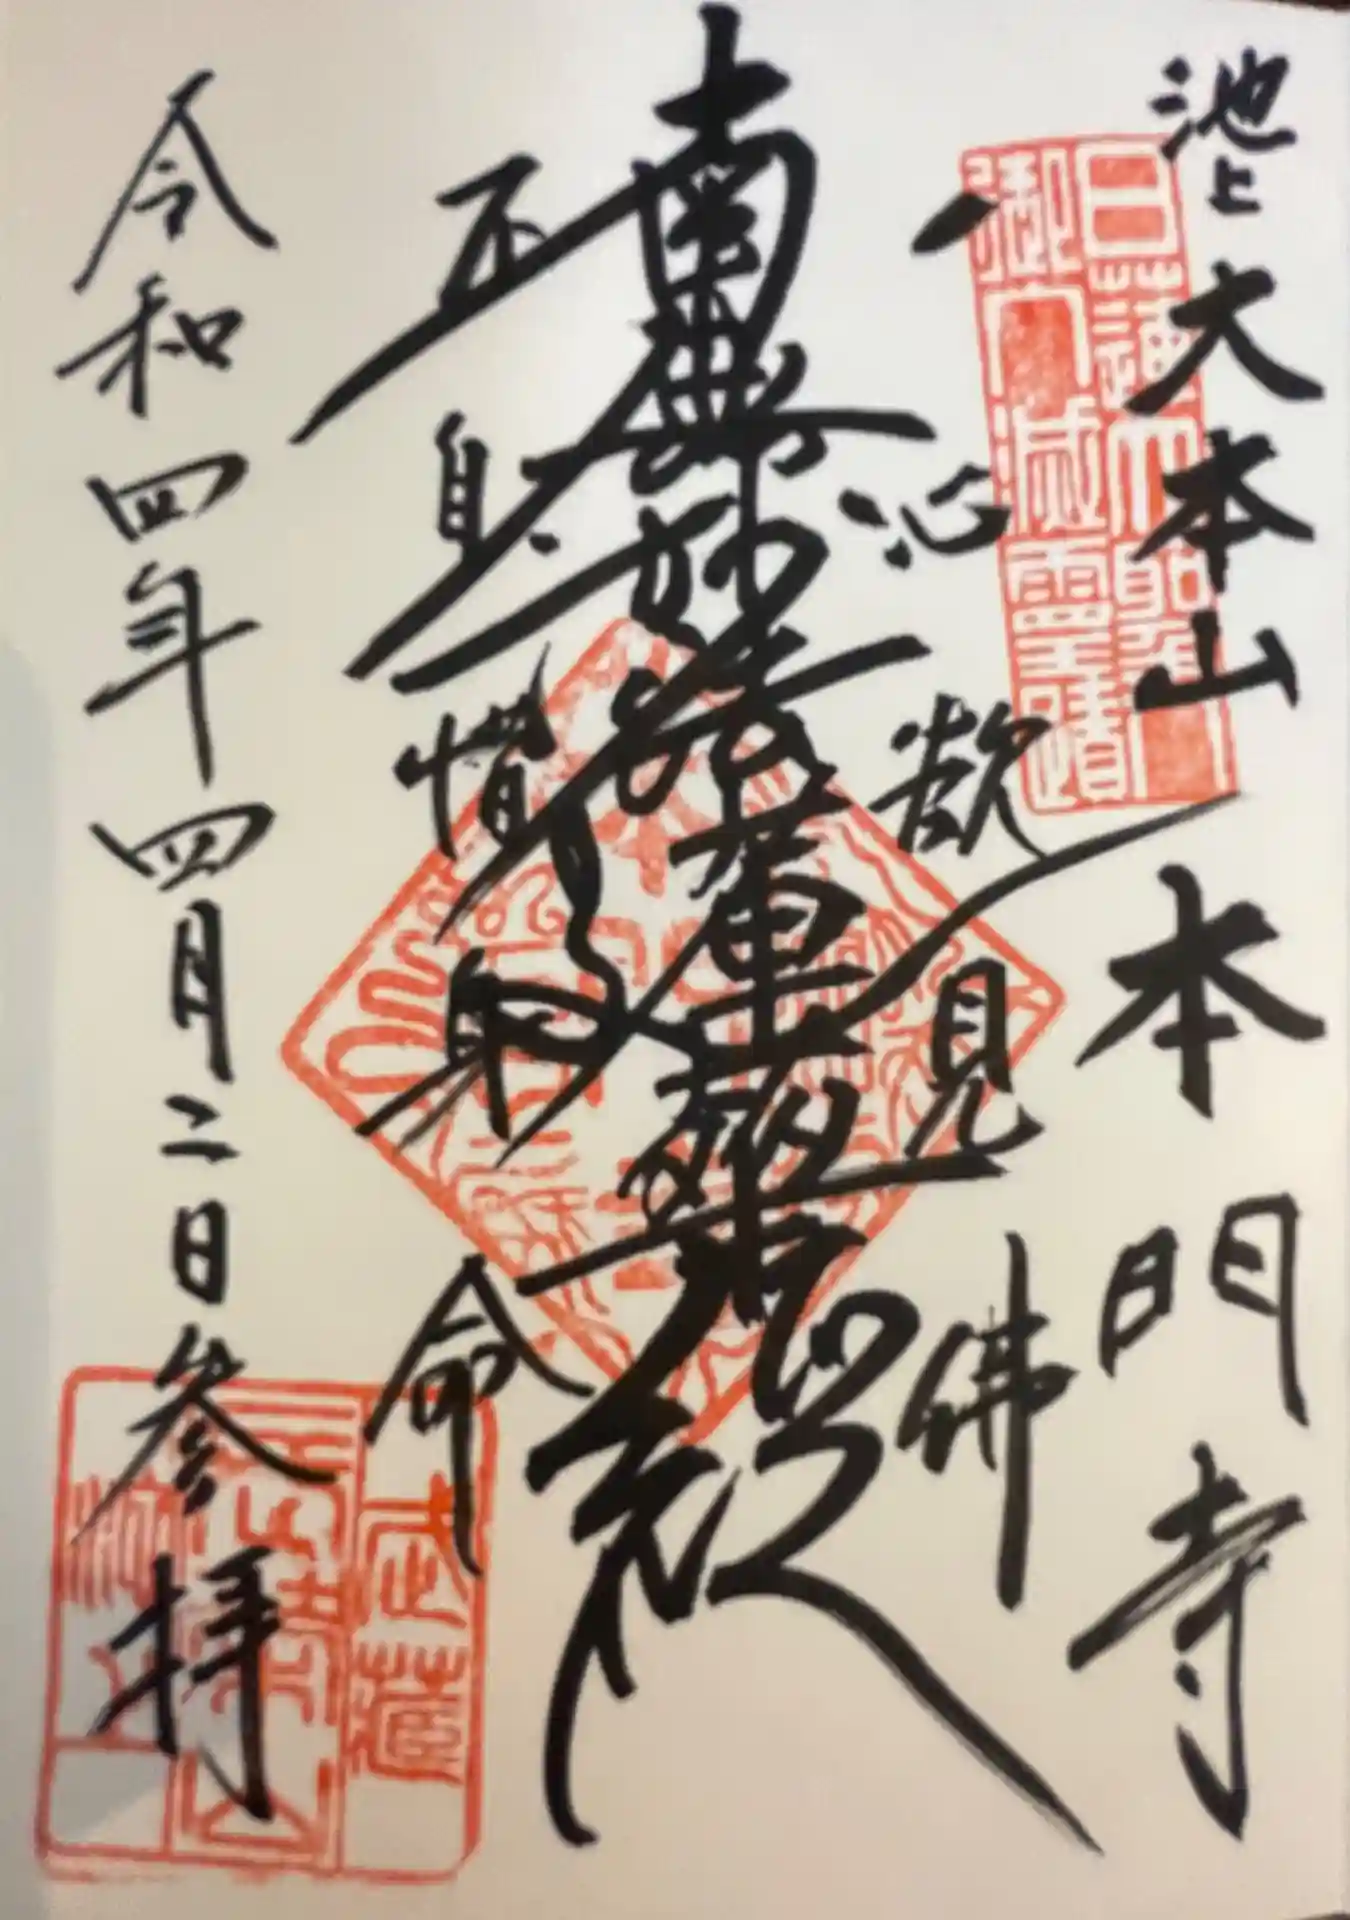 池上大本山
本門寺
一心欲見佛
南無妙法蓮華経
不自惜身命
令和四年四月二日参拝
日蓮大聖人
御入滅霊蹟
武蔵